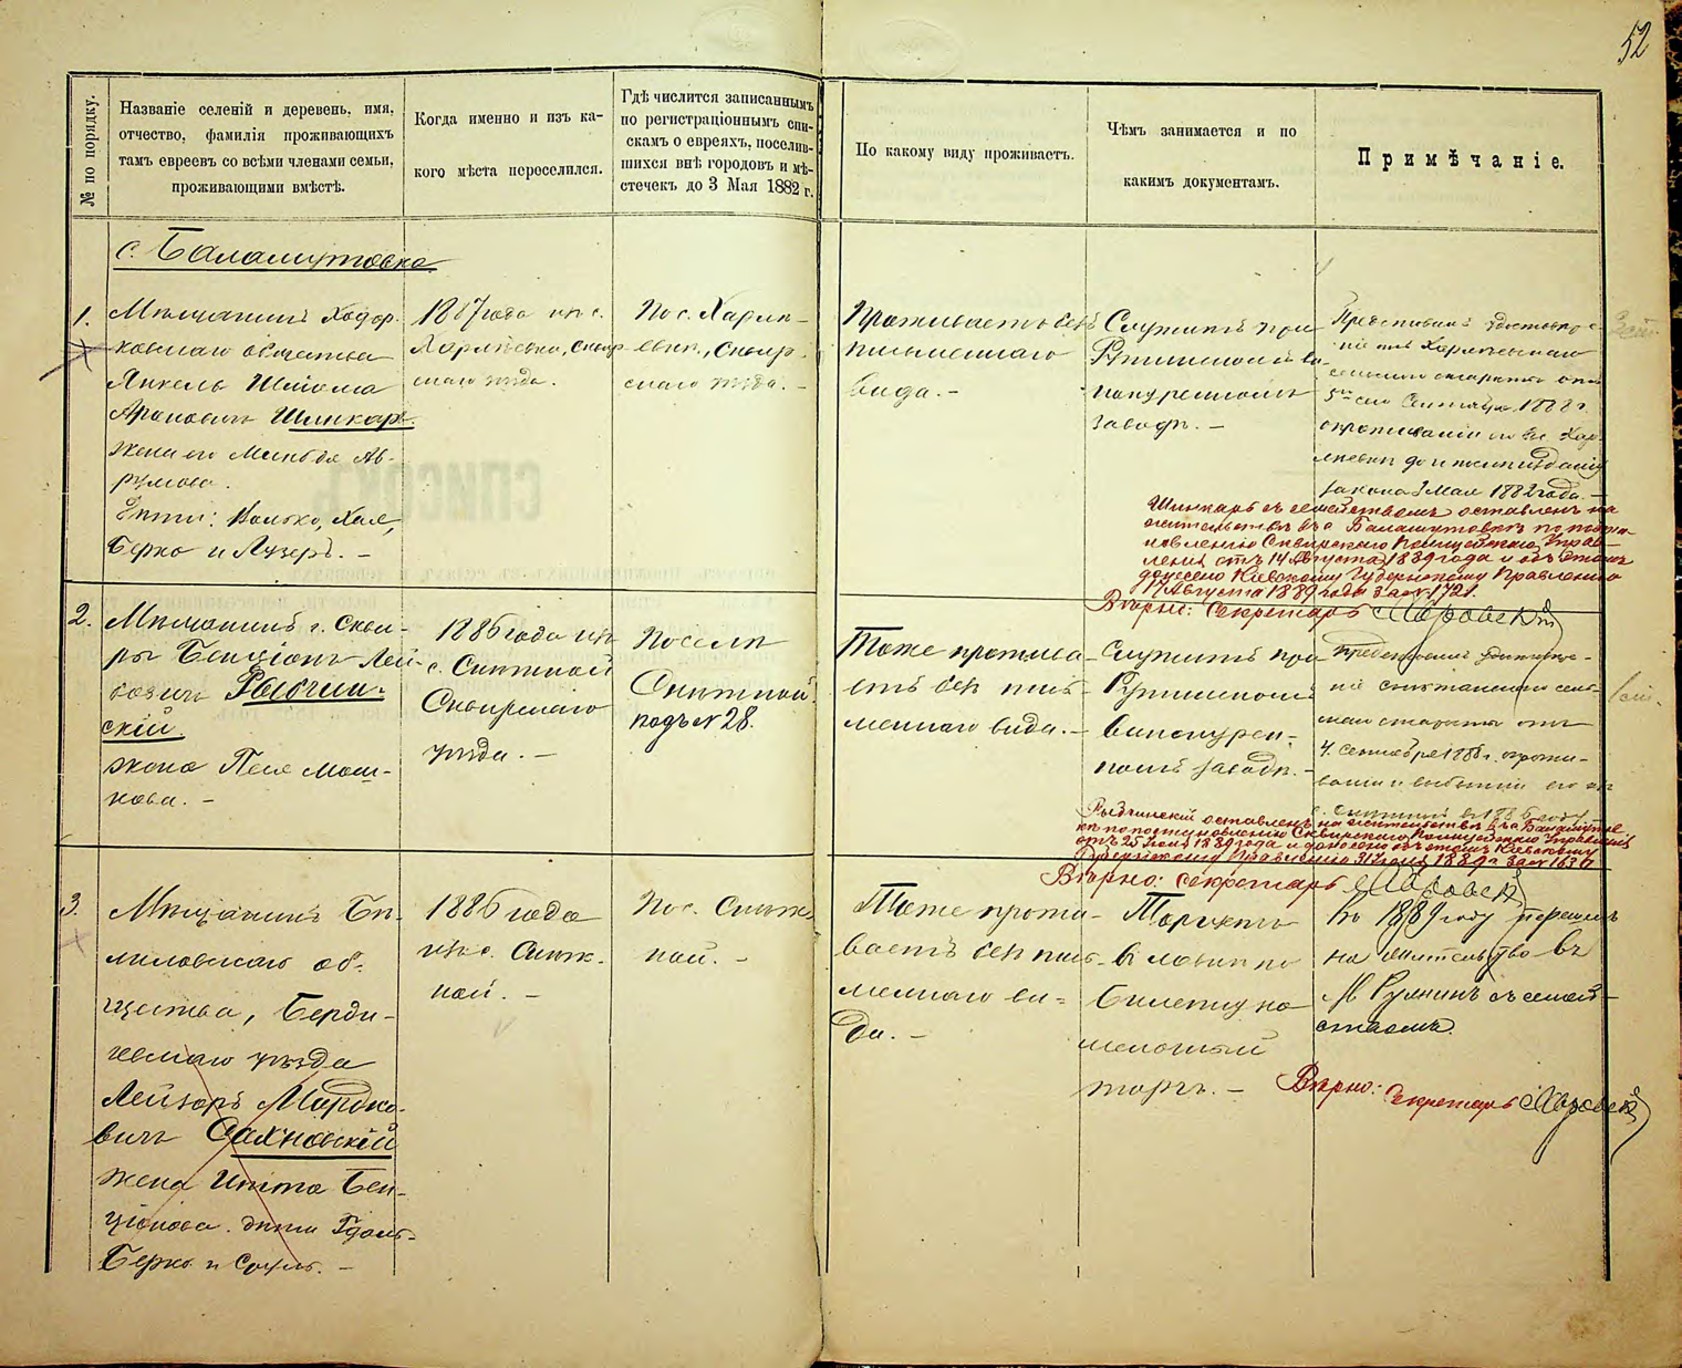 52
№ по порядку.
Названіе селеній и деревень, имя,
отчество, фамилія проживающихъ
тамъ евреевъ со всѣми членами семьи,
проживающими вмѣстѣ.
Когда именно и изъ ка-
кого мѣста переселился.
Гдѣ числится записаннымъ
по регистраціоннымъ спи-
скамъ о евреяхъ, поселив-
шихся внѣ городовъ и мѣ-
стечекъ до 3 Мая 1882 г.
По какому виду проживаетъ.
Чѣмъ занимается и по
какимъ документамъ.
Примѣчаніе.
с. Баламутовка
1.
Мѣщанинъ Ходор-
ковскаго общества
Янкель Шліома
Ароновичъ Шинкарь
жена его Миндля Ав-
румова.
Дѣти: Волько, Хая,
Берко и Лузеръ. –
1887 года изъ с.
Харлѣевки, Сквир-
скаго уѣзда.
По с. Харлѣ-
евкѣ, Сквир-
скаго уѣзда. –
Проживаетъ безъ
письменнаго
вида. –
Служитъ при
Ружинскомъ ви-
нокуренномъ
заводѣ. –
Представилъ удостовѣре-
ніе Харлѣевскаго
сельскаго старосты отъ
5го Сентября 1888 г.
о проживаніи его въ Хар-
лѣевкѣ до и послѣ изданія
закона 3 Мая 1882 года. –
Шинкарь съ семействомъ оставленъ на
жительствѣ въ с. Баламутовкѣ по поста-
новленію Сквирскаго Полицейскаго Управ-
ленія отъ 14 Августа 1889 года и объ этомъ
донесено Кіевскому Губернскому Правленію
17 Августа 1889 года за № 1721.
Вѣрно: Секретарь
2.
Мѣщанинъ г. Скви-
ры Бенціонъ Лей-
бовичъ Рыбчин-
скій.
жена Песя Мош-
кова. –
1886 года изъ
с. Снѣжной
Сквирскаго
уѣзда. –
По селѣ
Снѣжной
подъ № 28.
Тоже прожива-
етъ безъ пись-
меннаго вида. –
Служитъ при
Ружинскомъ
винокурен-
номъ заводѣ. –
Представилъ удостовѣре-
ніе снѣжанскаго сель-
скаго старосты отъ
4 Сентября 1888 г. о прожи-
ваніи и выбытіи его изъ
с. Снѣжной въ 1886 году.
Рыбчинскій оставленъ на жительствѣ въ с. Баламутов-
кѣ по постановленію Сквирскаго Полицейскаго Управленія
отъ 25 Іюля 1889 года и донесено объ этомъ Кіевскому
Губернскому Правленію 31 Іюля 1889 г. за № 1630
Вѣрно: Секретарь
3.
Мѣщанинъ Би-
миловскаго об-
щества, Берди-
чевскаго уѣзда
Лейзоръ Мордко-
вичъ Сахновскій
жена Ципа Бен-
ціонова. дѣти Гдаль-
Берко и Сруль. –
1886 года
изъ с. Снѣж-
ной. –
По с. Снѣж-
ной. –
Тоже прожи-
ваетъ безъ пись-
меннаго ви-
да. –
Торгуетъ
въ лавкѣ по
билету на
мелочный
торгъ. –
Въ 1889 году перешелъ
на жительство въ
М. Ружинъ съ семей-
ствомъ.
Вѣрно: Секретарь